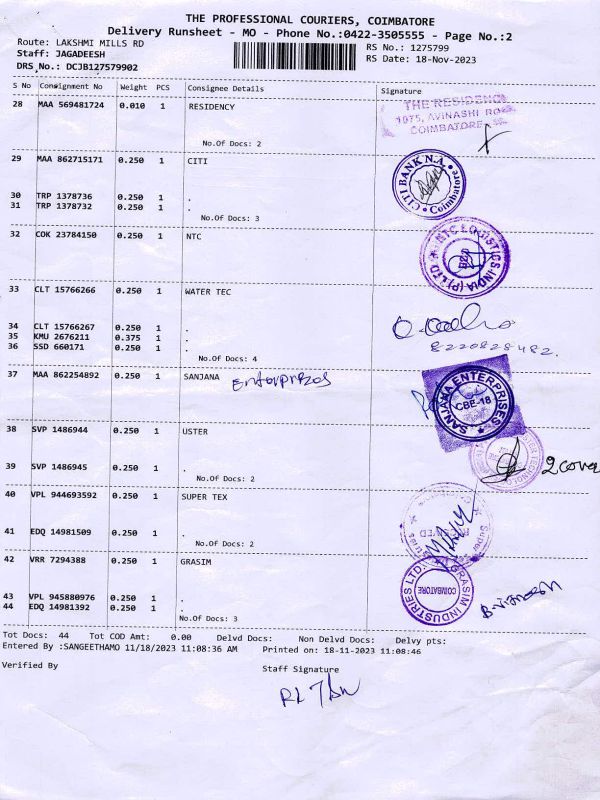 THE PROFESSIONAL COURIERS, COIMBATORE
Delivery Runsheet - MO - Phone No.:0422-3505555 - Page No.:2
Route: LAKSHMI MILLS RD
RS No.: 1275799
Staff: JAGADEESH
RS Date: 18-Nov-2023
DRS No.: DCJB127579902
S No Consignment No Weight PCS Consignee Details Signature
28 MAA 569481724 0.010 1 RESIDENCY
THE RESIDENCY
1075, AVINASHI ROAD
COIMBATORE
No.Of Docs: 2
29 MAA 862715171 0.250 1 CITI
CITI BANK N.A. Coimbatore
30 TRP 1378736 0.250 1 .
31 TRP 1378732 0.250 1 .
No.Of Docs: 3
32 COK 23784150 0.250 1 NTC
NTC LOGISTICS INDIA (P) LTD
33 CLT 15766266 0.250 1 WATER TEC
34 CLT 15766267 0.250 1 .
35 KMU 2676211 0.375 1 .
36 SSD 660171 0.250 1 .
8220828482.
No.Of Docs: 4
37 MAA 862254892 0.250 1 SANJANA Enterprizes
SANJANA ENTERPRISES
CBE-18
38 SVP 1486944 0.250 1 USTER
39 SVP 1486945 0.250 1 .
2 cover
No.Of Docs: 2
40 VPL 944693592 0.250 1 SUPER TEX
41 EDQ 14981509 0.250 1 .
No.Of Docs: 2
42 VRR 7294388 0.250 1 GRASIM
GRASIM INDUSTRIES LTD.
COIMBATORE
43 VPL 945880976 0.250 1 .
44 EDQ 14981392 0.250 1 .
No.Of Docs: 3
Tot Docs: 44 Tot COD Amt: 0.00 Delvd Docs: Non Delvd Docs: Delvy pts:
Entered By :SANGEETHAMO 11/18/2023 11:08:36 AM Printed on: 18-11-2023 11:08:46
Verified By Staff Signature